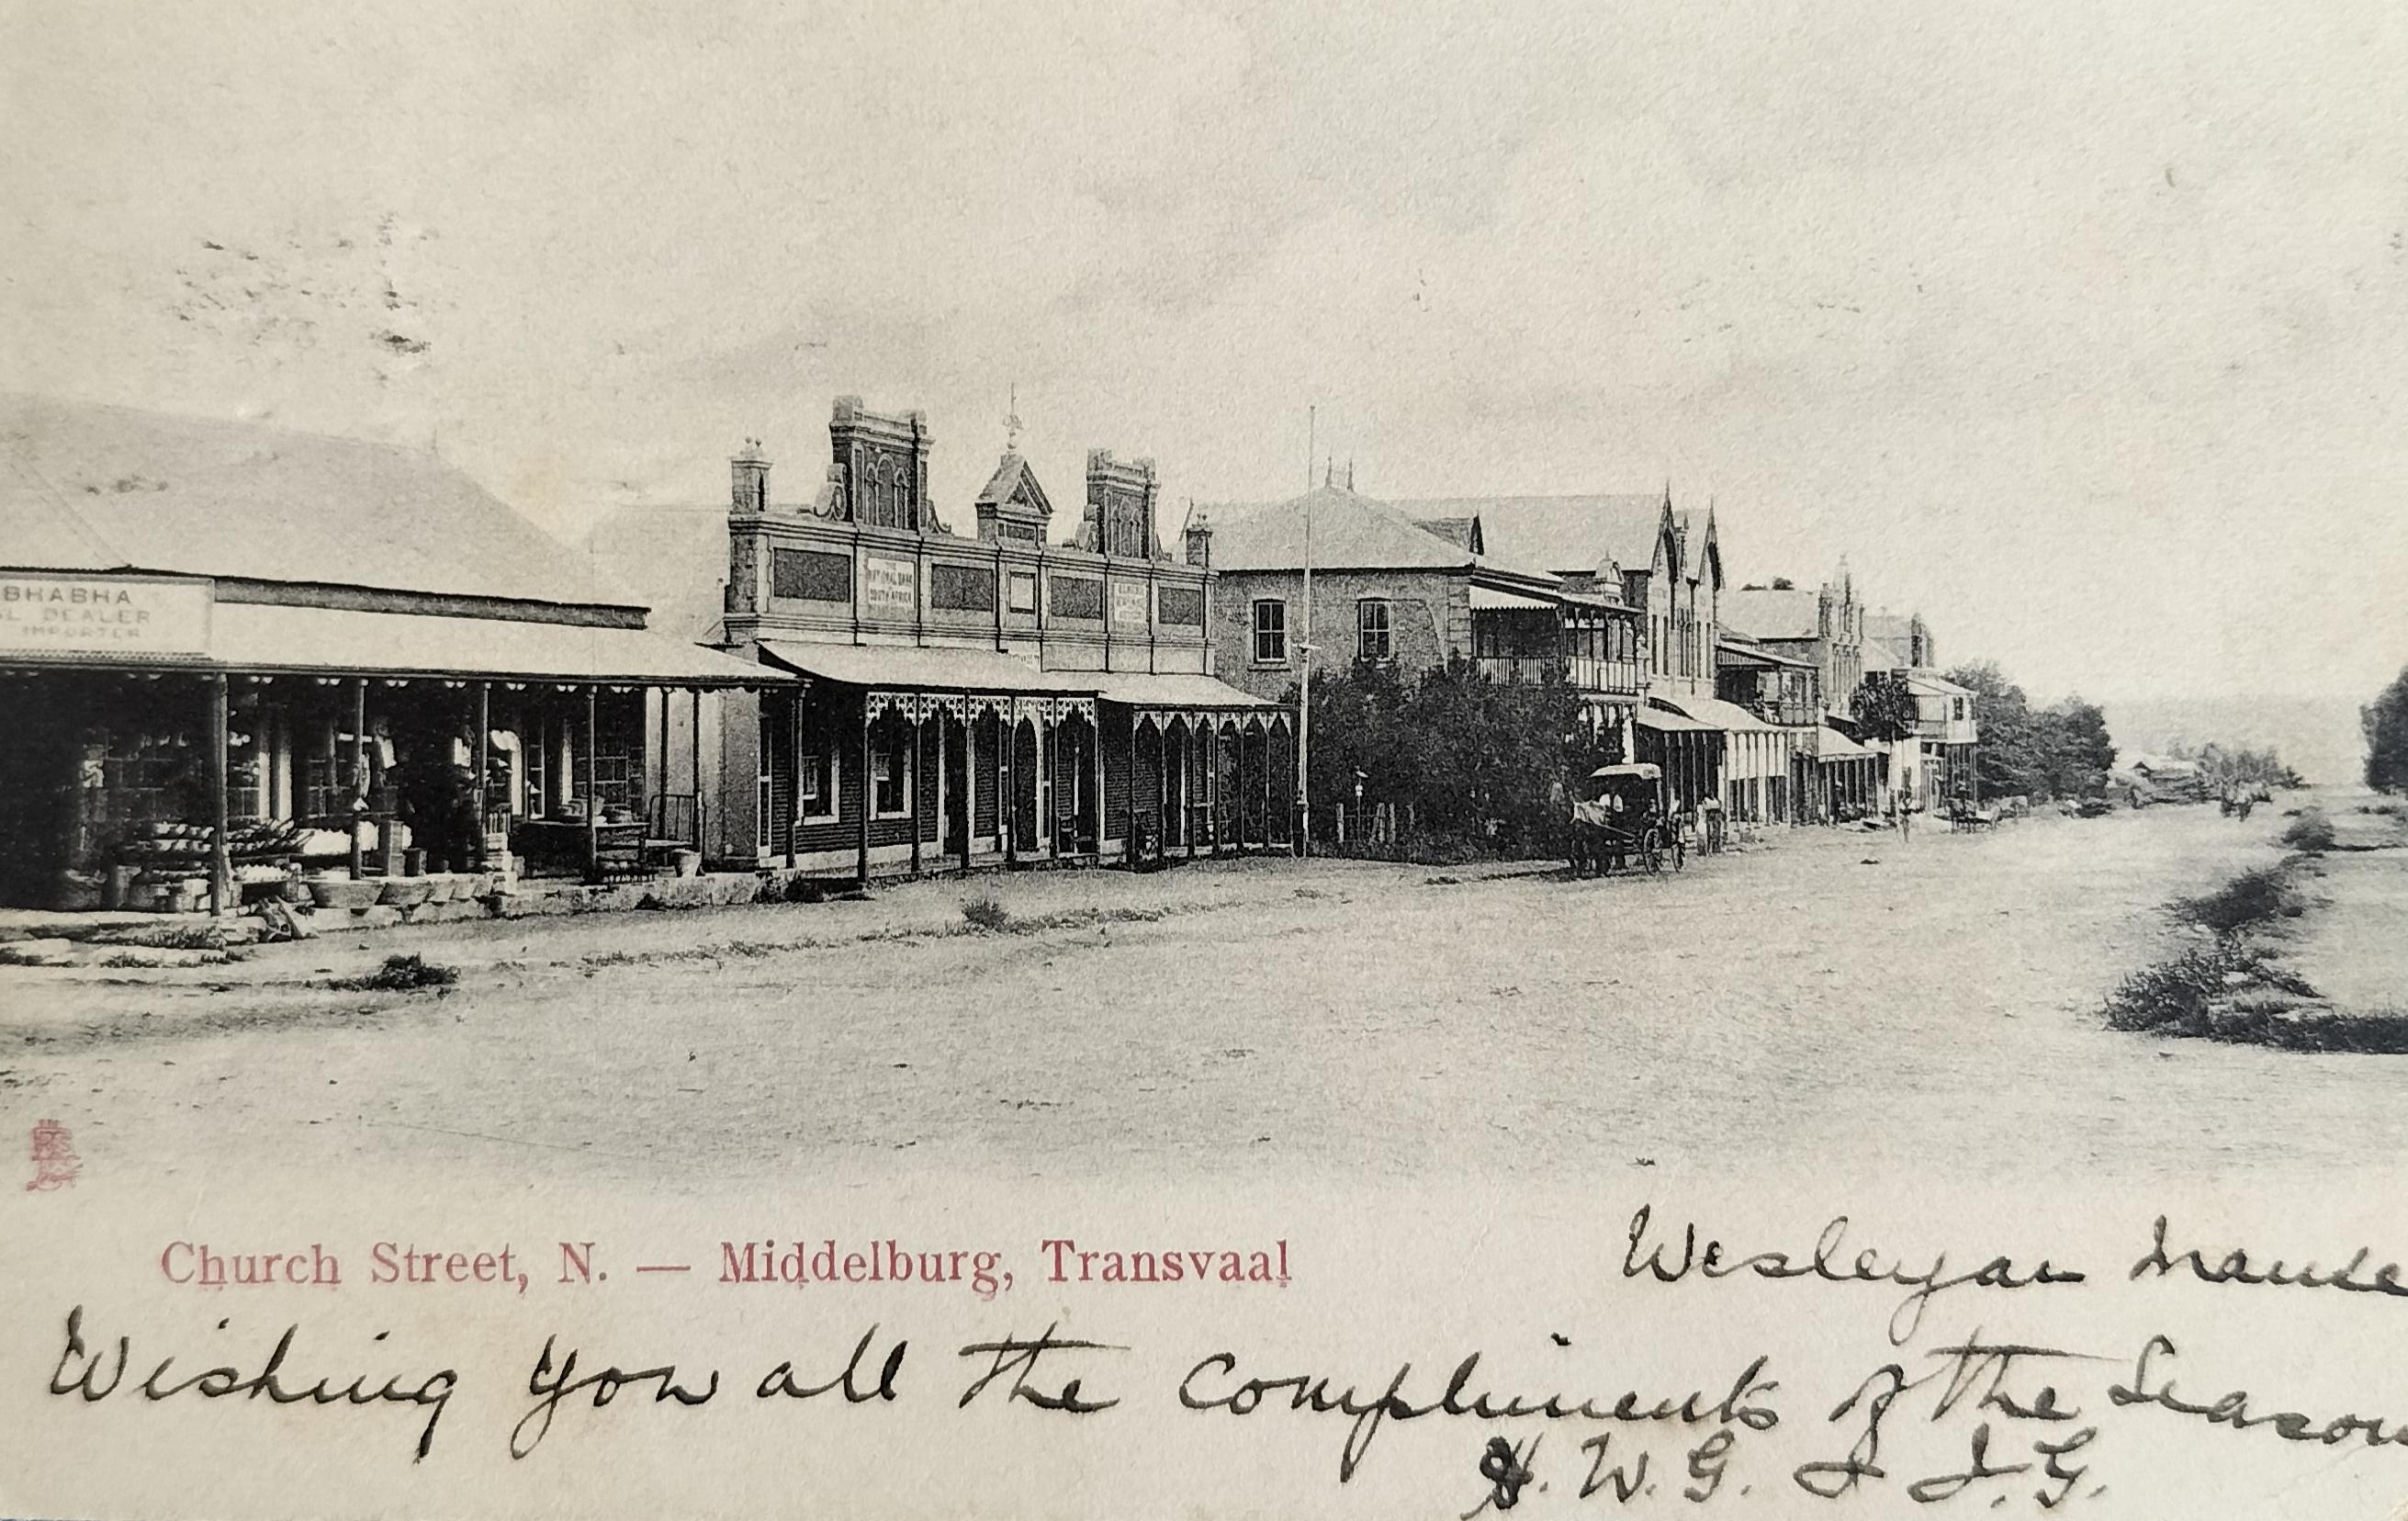 BHABHA
DEALER
IMPORTER
THE
NATIONAL BANK
SOUTH AFRICA
Church Street, N. — Middelburg, Transvaal
Wesleyan Manse
Wishing you all the compliments of the Season
H. W. G. & J. G.